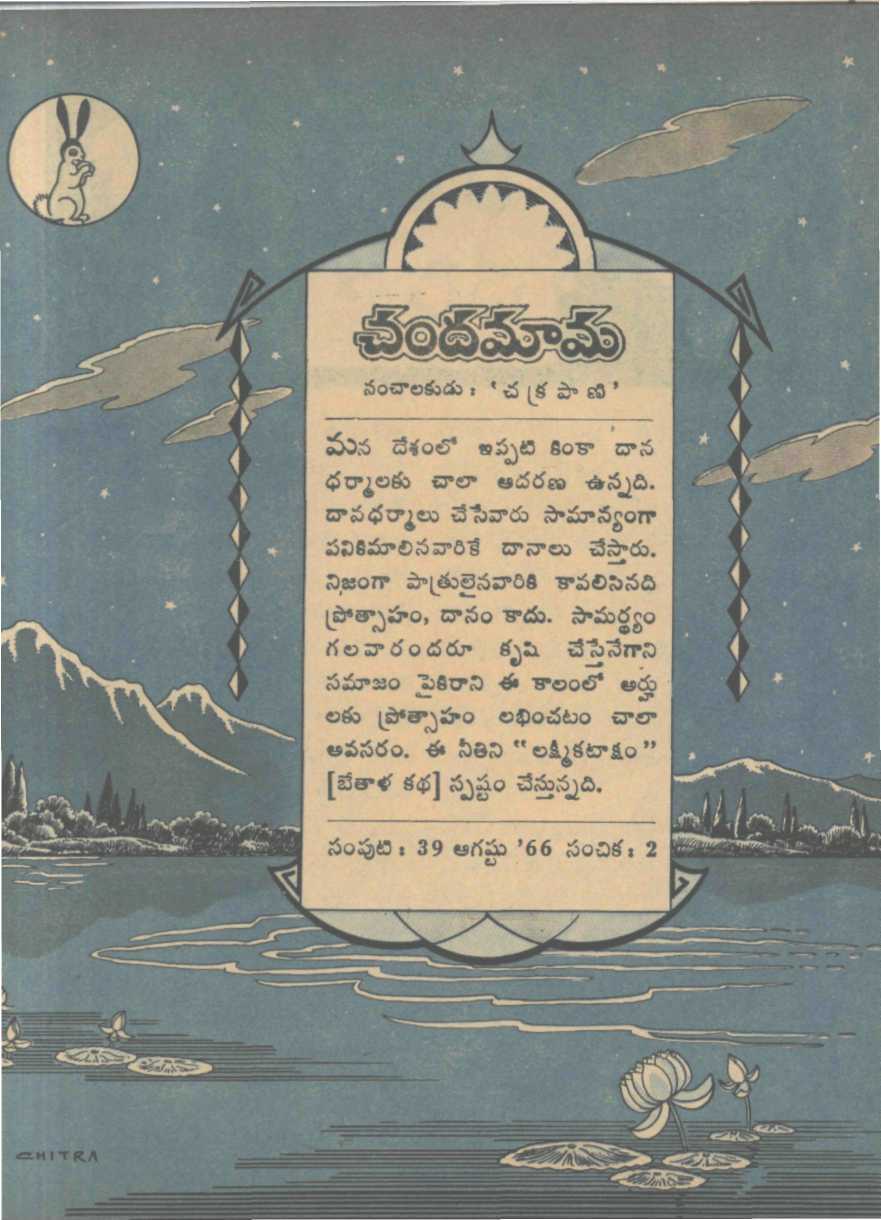 చందమామ
సంచాలకుడు : ‘చక్రపాణి’
మన దేశంలో ఇప్పటి కింకా దాన
ధర్మాలకు చాలా ఆదరణ ఉన్నది.
దావధర్మాలు చేసేవారు సామాన్యంగా
పనికిమాలినవారికే దానాలు చేస్తారు.
నిజంగా పాత్రులైనవారికి కావలిసినది
ప్రోత్సాహం, దానం కాదు. సామర్థ్యం
గలవారందరూ కృషి చేస్తేనేగాని
సమాజం పైకిరాని ఈ కాలంలో అర్హు
లకు ప్రోత్సాహం లభించటం చాలా
అవసరం. ఈ నీతిని “లక్ష్మీకటాక్షం”
[బేతాళ కథ] స్పష్టం చేస్తున్నది.
సంపుటి : 39 ఆగష్టు ’66 సంచిక : 2
CHITRA